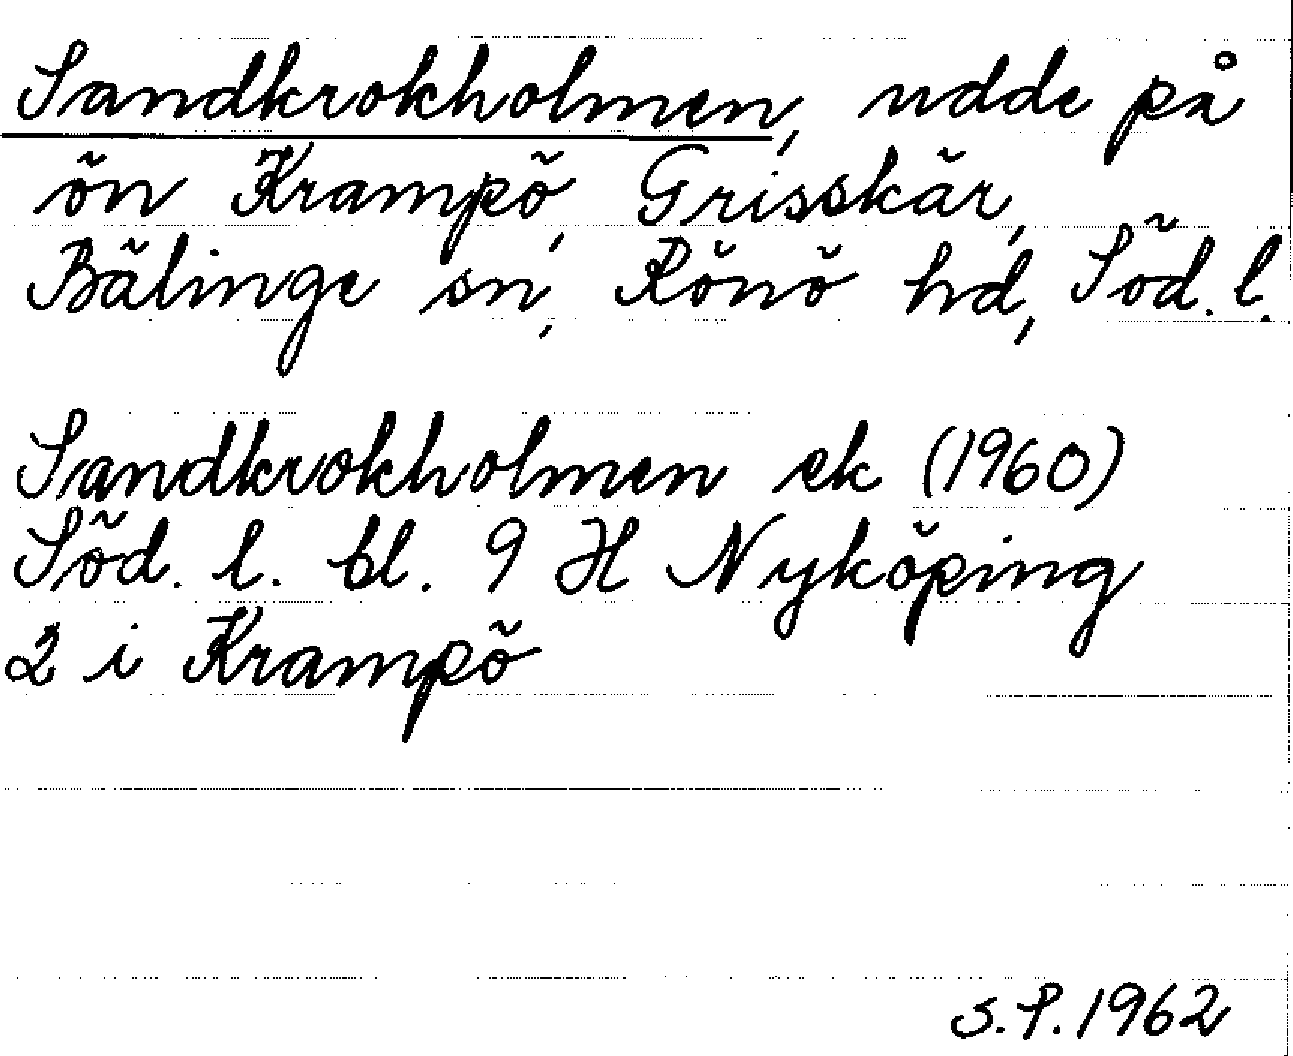 Sandkrokholmen, udde på
ön Krampö, Grisskär,
Bälinge sn, Rönö hd, Söd. l.
Sandkrokholmen ek (1960)
Söd. l. bl. 9 H Nyköping
2 i Krampö
S.P. 1962